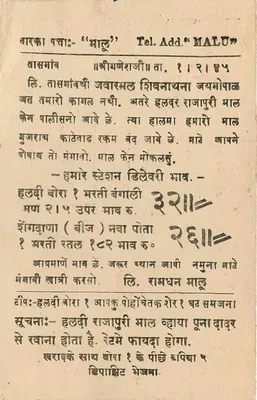 तारका पत्ता:- "मालू" Tel. Add." MALU"
तासगांव ॥श्रीगणेशजी॥ ता. १।२।४५
लि. तासगांवथी जवारमल शिवनाथना जयगोपाळ
जत तमारो कागल नथी. अतरे हलदर राजापुरी माल
फेन पालीसनो आवे छे. त्या हालमा हमारो माल
गुजराथ काठेवाड रकम बंद जावे छे. माटे आपने
पोषाय तो मंगावो. माल फेन मोकलसुं.
—हमारे स्टेशन डिलेवरी भाव.—
हलदी बोरा १ भरती बंगाली
मण २।५ उपर भाव रु. ३२॥=
शेंगदाणा (बीज) नवा पोता
१ भरती रतल १८२ भाव रु० २६॥=
आप्रमाणें भाव छे. जरूर ध्यान आपी नमुना माटे
मंगावी खात्री करसो. लि. रामधन मालू
टीप:-हलदी बोरा १ आपकु पोहोंचतेक शेर १ घट समजना
सूचना:- हलदी राजापुरी माल व्हाया पूना दादर
से रवाना होता है. रेटमे फायदा होगा.
खरीदके साथ बोरा १ के पीछे रुपिया ५
डिपाझिट भेजना.